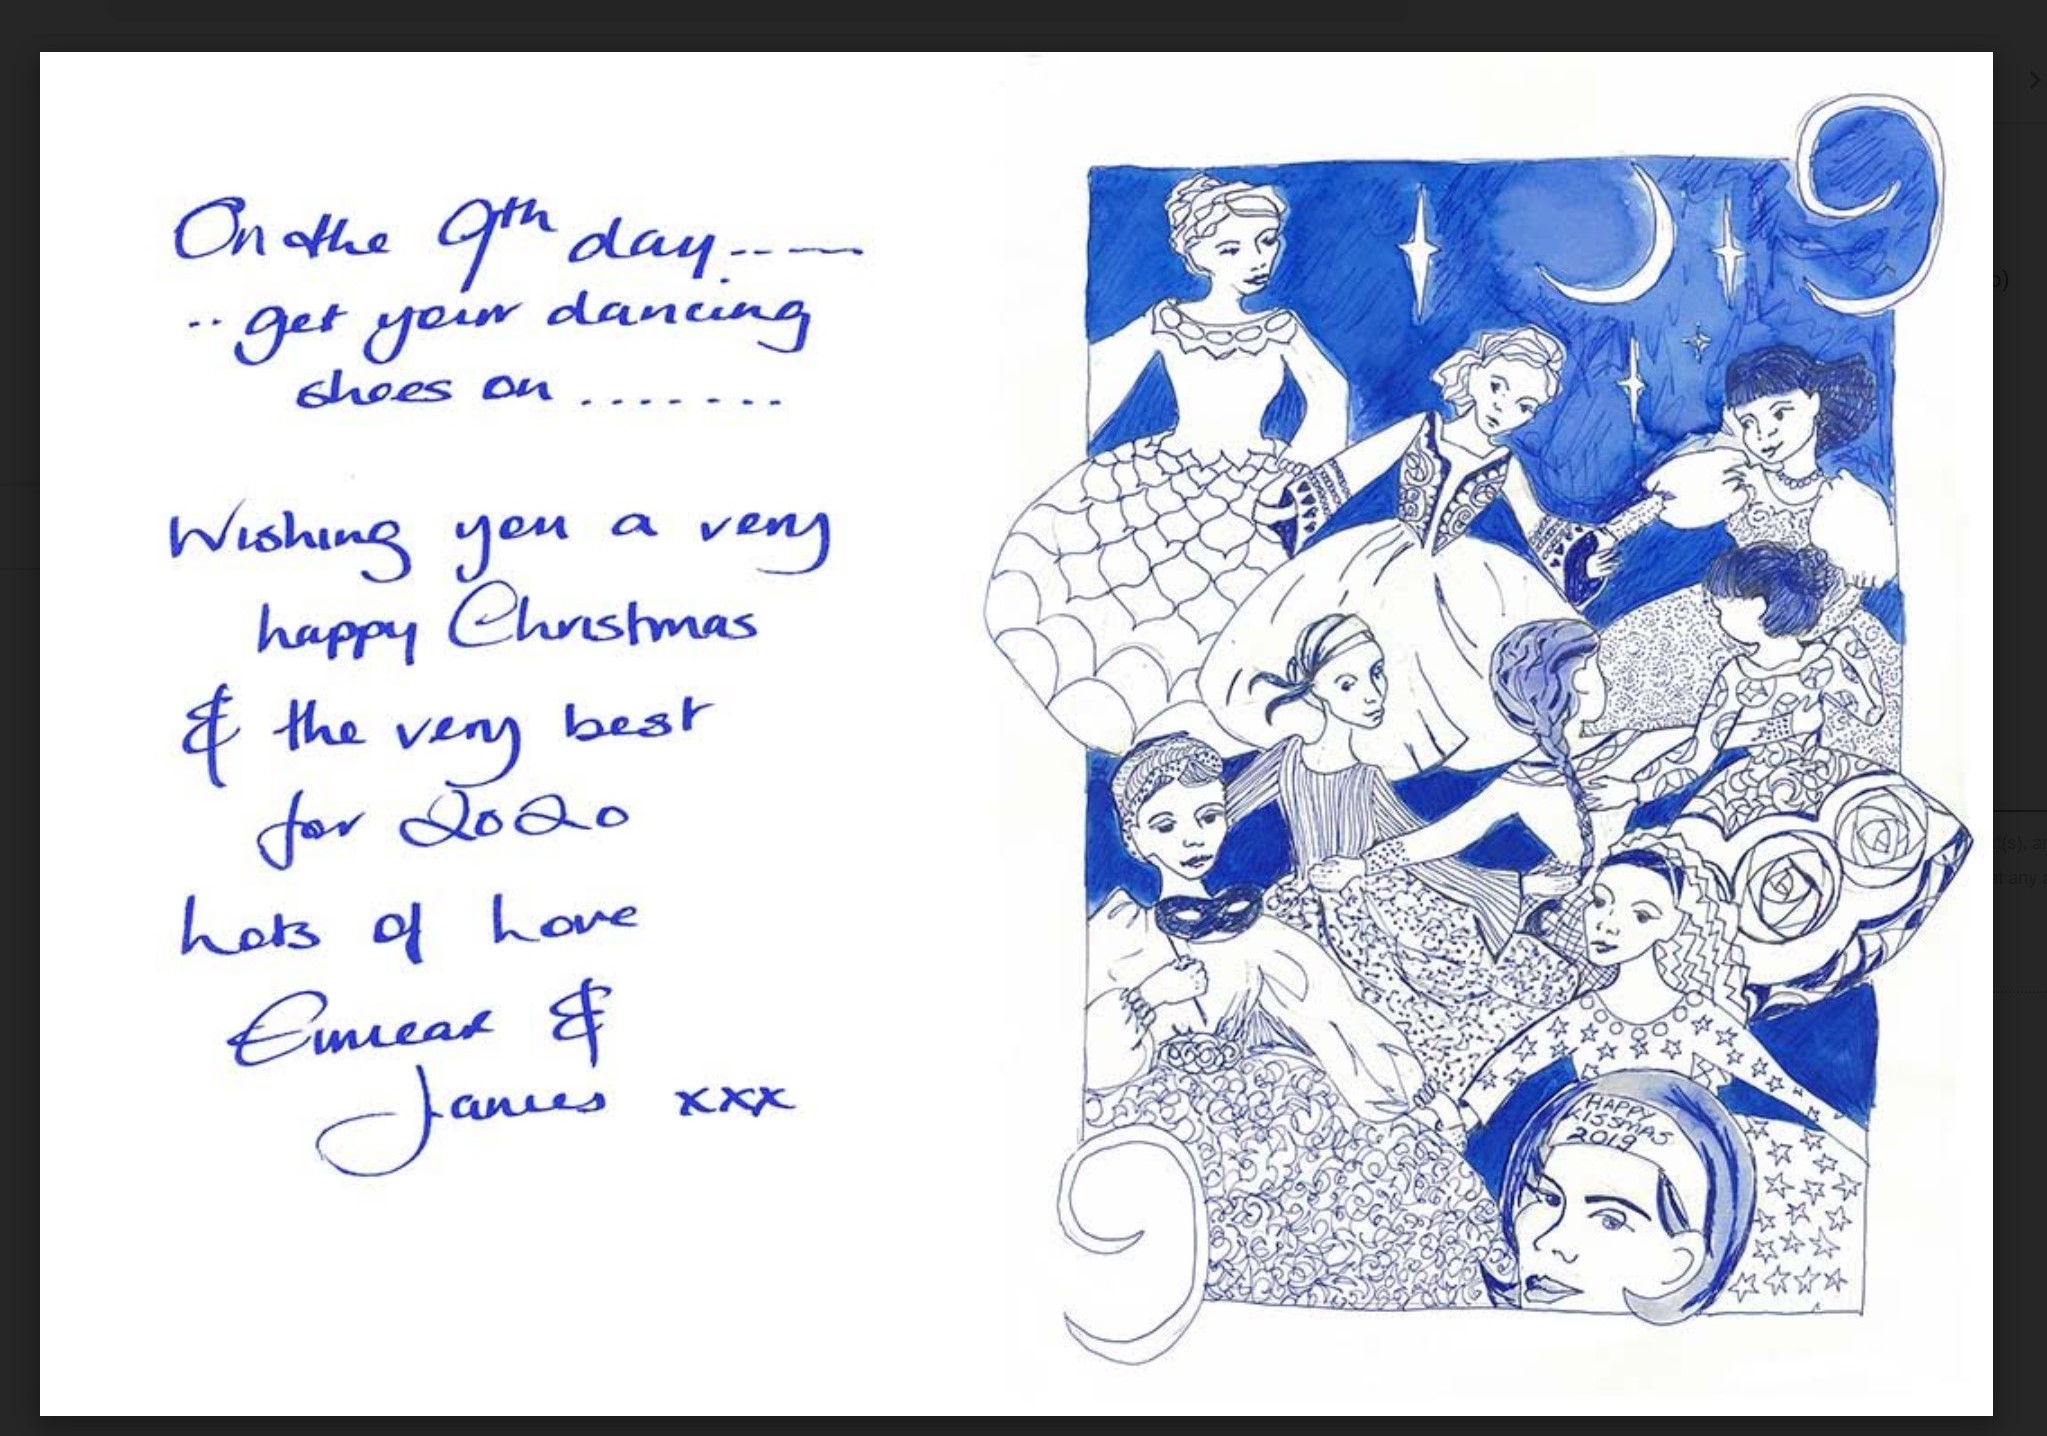 On the 9th day.......
.. get your dancing
shoes on .......
Wishing you a very
happy Christmas
& the very best
for 2020
Lots of Love
Eimear &
James xxx
9
HAPPY
KISSMAS
2019
9